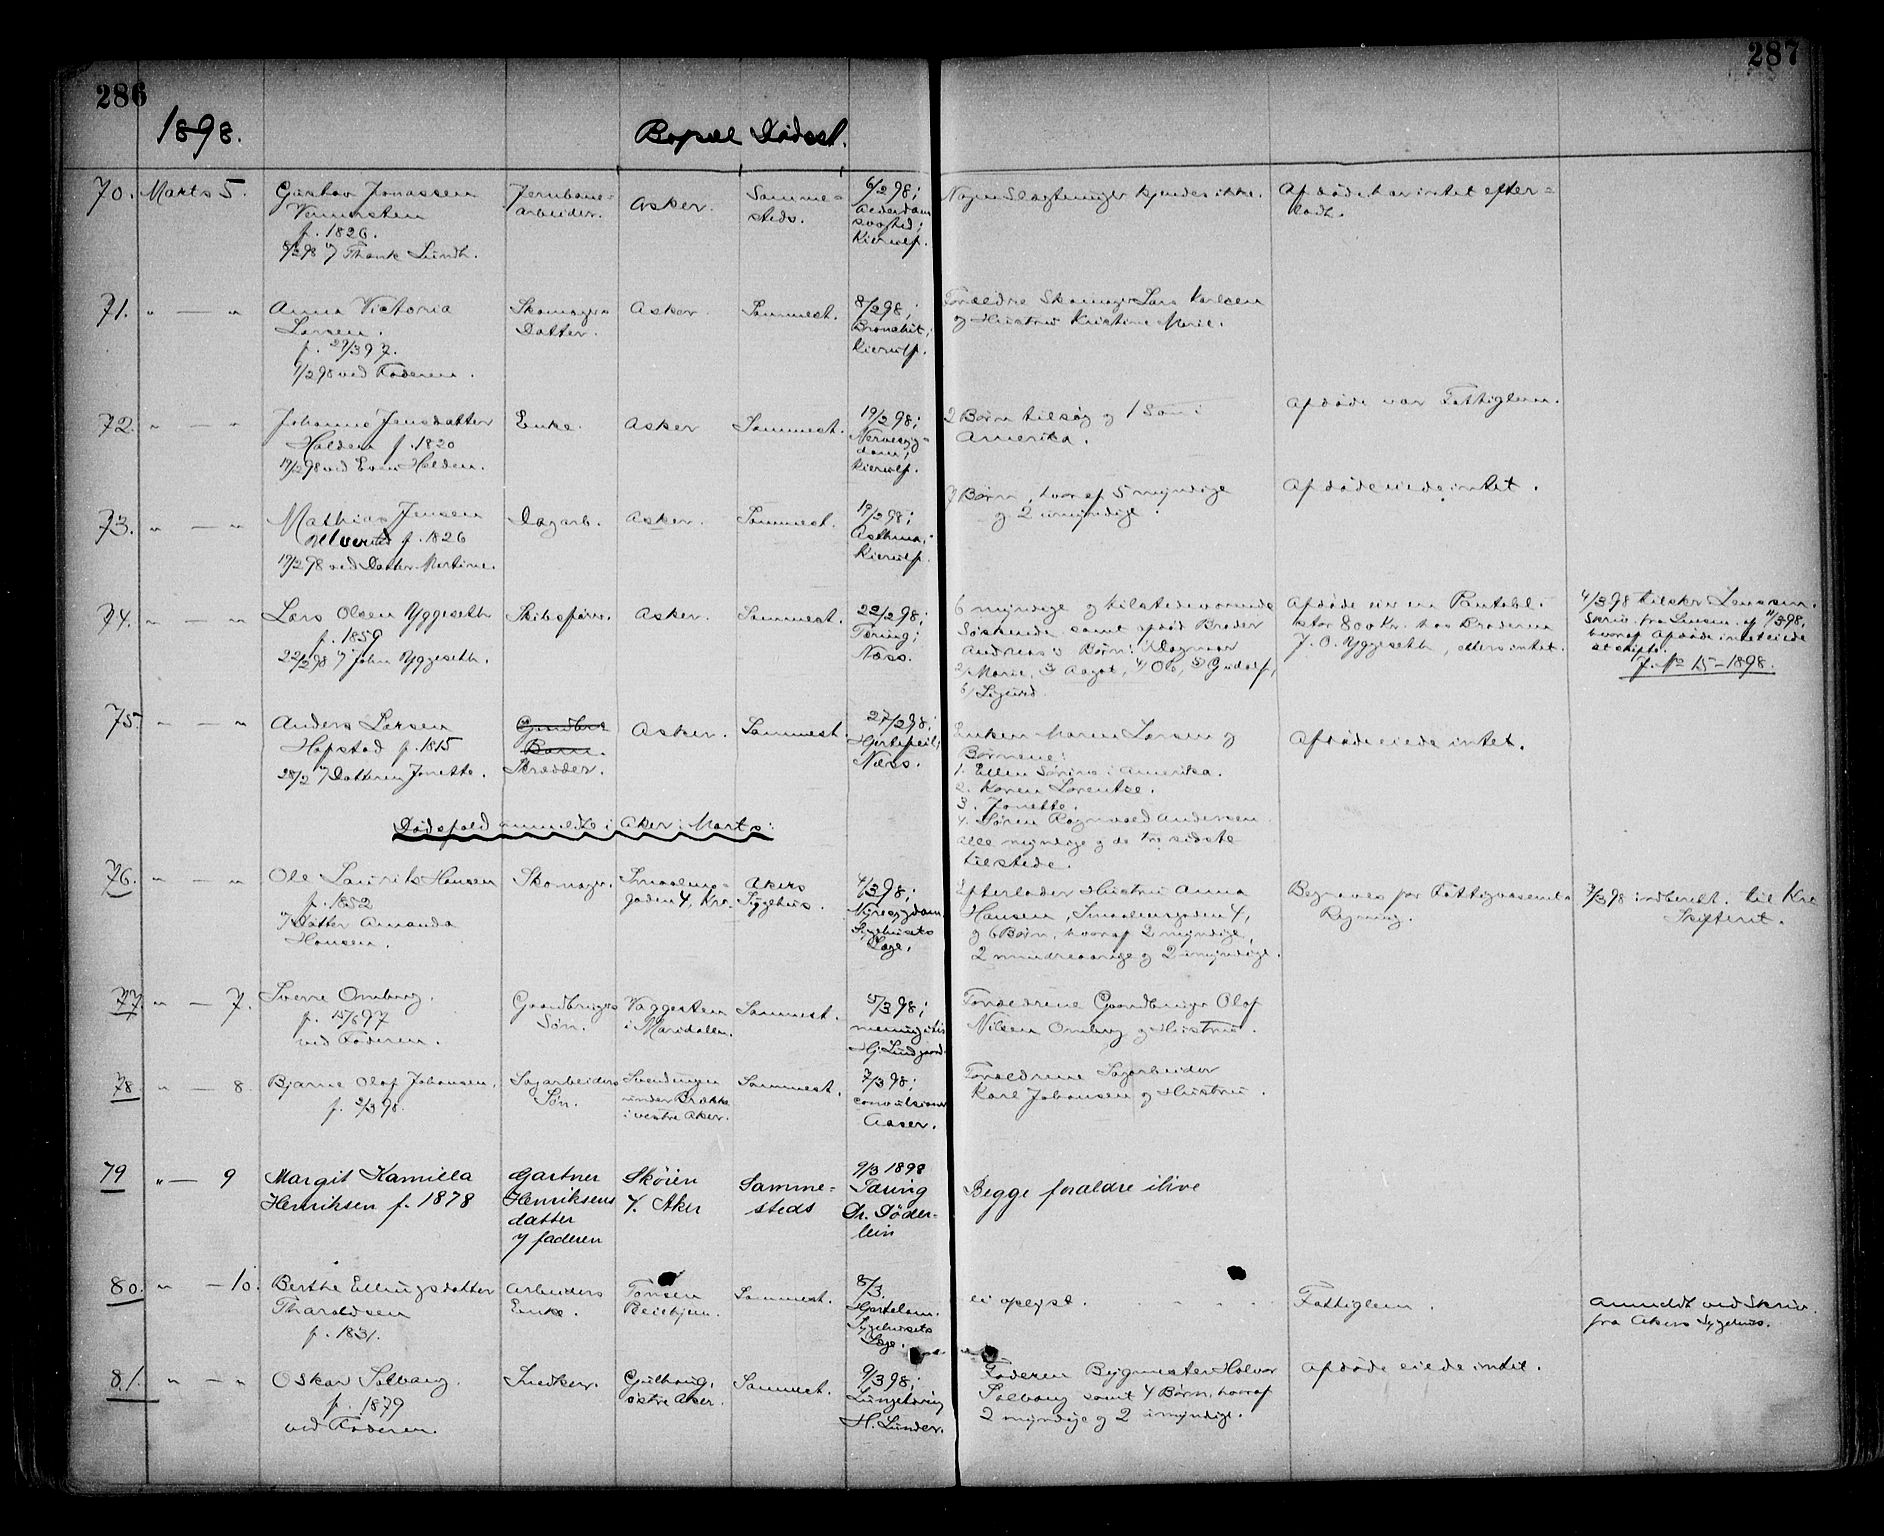 286
287
1898.
Bopæl Dødsst.
70. Marts 5. Gustav Jonassen
f. 1826.
8/2 98 v/ Thank Lundh.
Jernbane-
arbeider.
Asker.
Samme-
steds.
6/2 98;
Alderdoms
svaghed;
Kierulf.
Nogen Slægtninger kjendes ikke.
Afdøde har intet efter-
ladt.
71. " — " Anna Victoria
Larsen.
f. 29/3 97.
ved Faderen.
Skomagers
Datter.
Asker.
Sammest.
8/2 98;
Bronchit;
Kierulf.
Forældre Skomager Lars Karlsen
og Hustru Kristine Marie.
72. " — " Johanne Jensdatter
Halden f. 1820
19/2 98 ved Even Halden.
Enke.
Asker
Sammest.
19/2 98;
Nervesyg-
dom;
Kierulf.
2 Børn tilsog og 1 Søn i
Amerika.
Afdøde var Fattiglem.
73. " — " Mathias Jensen
f. 1826
19/2 98 ved Datter Martine.
Dagarb.
Asker.
Sammest.
19/2 98;
Asthma;
Kierulf.
7 Børn, hvoraf 5 myndige
og 2 umyndige.
Afdøde eiede intet.
74. " — " Lars Olsen Yggeseth
f. 1859
22/2 98 v/ John Yggeseth.
Skibsfører.
Asker.
Sammest.
22/2 98;
Tæring;
Næss.
6 myndige og tilstedeværende
Søskende samt afdød Broder
Andreas's Børn: 1) Dagmar
2) Marie, 3) Aagot, 4) Ole, 5) Gudolf,
6) Sigurd.
Afdøde eier en Pantobl.
stor 800 Kr. hos Broderen
J. O. Yggeseth, ellers intet.
4/3 98 tilskr. Lensm.
Skriv. fra Lensm. af 11/3 98,
hvoraf Afdøde intet eiede
at skifte.
J. No 15 – 1898.
75. " — " Anders Larsen
Hofstad f. 1815
28/2 v/ Datteren Jonette.
Gaardbr.
Skrædder.
Asker.
Sammest.
27/2 98;
Hjertefeil;
Næss.
Enken Maren Larsen og
Børnene:
1. Ellen Sørine i Amerika.
2. Karen Lorentze.
3. Jonette.
4. Søren Ragnvald Andersen
alle myndige og de tre sidste
tilstede.
Afdøde eiede intet.
Dødsfald anmeldte i Aker i Marts:
76. " — " Ole Laurits Hansen
f. 1852
v/ Datter Amanda
Hansen.
Skomager.
Smaalens-
gaden 4, Kra.
Akers
Sygehus.
4/3 98;
Nyresygdom.
Sygehusets
Læge.
Efterlader Hustru Anna
Hansen, Smaalensgaden 4,
og 6 Børn, hvoraf 2 myndige,
2 mindreaarige og 2 umyndige.
Begraves for Fattigvæsenets
Regning.
7/3 98 indberett. til Kra
Skifteret.
77. " — 7. Sverre Omberg.
f. 15/6 97
ved Faderen.
Gaardbrugers
Søn.
Vaggesten
i Maridalen.
Sammest.
5/3 98;
meningitis
Hj. Lindgaard.
Forældrene Gaardbruger Olaf
Nilsen Omberg og Hustru.
78. " — 8. Bjarne Olaf Johansen,
f. 2/3 98.
Sagarbeiders
Søn.
Svendengen
under Brække
i vestre Aker.
Sammest.
7/3 98;
convulsioner
Aaser.
Forældrene Sagarbeider
Karl Johansen og Hustru.
79 " — 9 Margit Kamilla
Henriksen f. 1878
Gartner
Henriksens
datter
v/ faderen
Skøien
V. Aker
Samme-
steds
9/3 1898
Tæring
Dr. Döder-
lein
Begge forældre ilive
80. " — 10. Berthe Ellingsdatter
Tharaldsen
f. 1831.
Arbeiders
Enke.
Tonsen
Pleiehjem.
Sammest.
8/3.
Sygehusets
Læge.
ei oplyst.
Fattiglem.
Anmeldt ved Skriv.
fra Akers Sygehus.
81. " — " Oskar Solberg.
f. 1879
ved Faderen.
Snedker.
østre Aker.
Sammest.
9/3 98;
Lungetæring
H. Lunder.
Faderen Bygmester Halvor
Solberg samt 4 Børn, hvoraf
2 myndige og 2 umyndige.
Afdøde eiede intet.